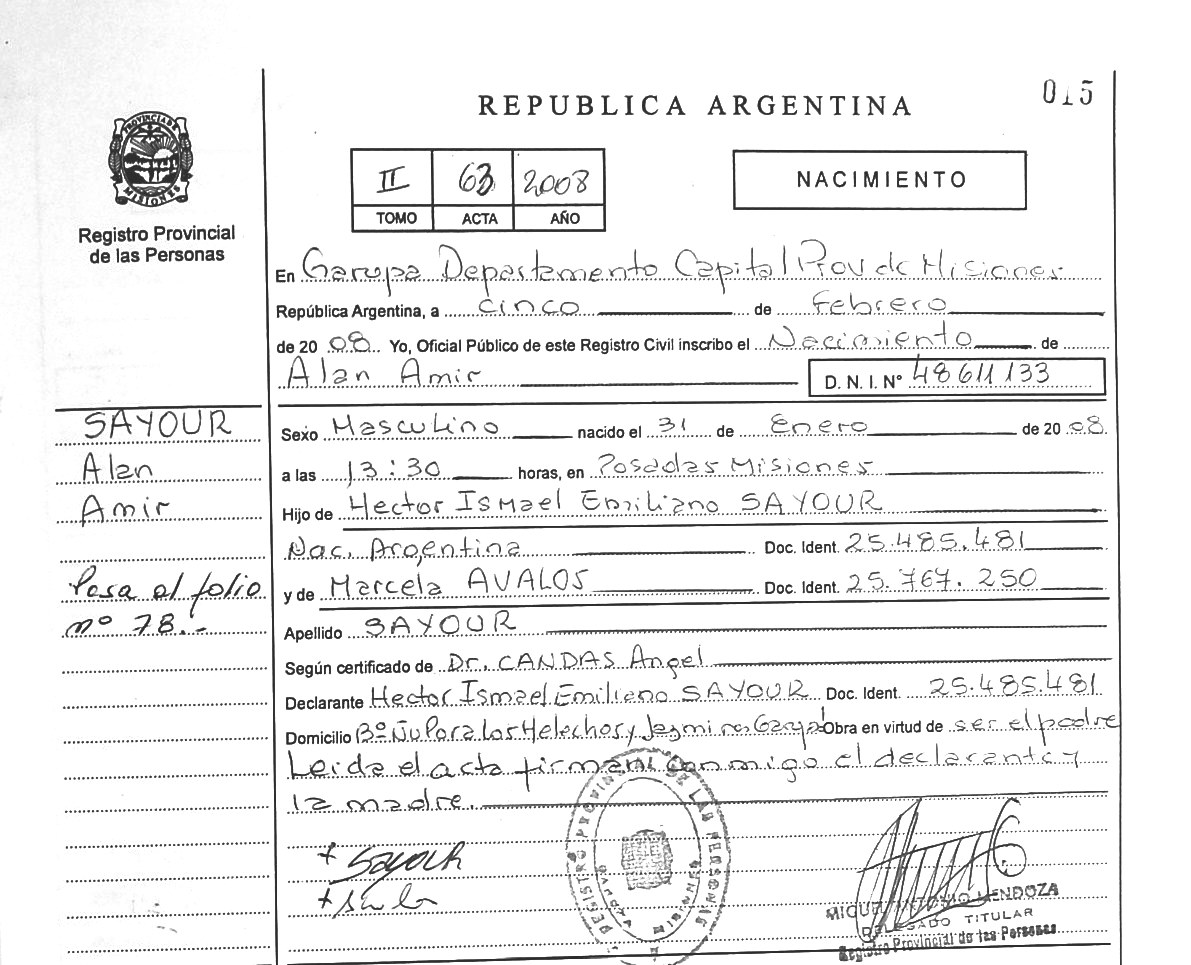 015
REPUBLICA ARGENTINA
PROVINCIA DE MISIONES
Registro Provincial
de las Personas
II 63 2008
TOMO ACTA AÑO
NACIMIENTO
En Garupa Departamento Capital Prov de Misiones
República Argentina, a cinco de Febrero
de 20 08 Yo, Oficial Público de este Registro Civil inscribo el Nacimiento de
Alan Amir D. N. I. Nº 48611133
SAYOUR
Alan
Amir
Pasa al folio
nº 78.-
Sexo Masculino nacido el 31 de Enero de 20 08
a las 13:30 horas, en Posadas Misiones
Hijo de Hector Ismael Emiliano SAYOUR
Nac. Argentina Doc. Ident. 25.485.481
y de Marcela AVALOS Doc. Ident. 25.767.250
Apellido SAYOUR
Según certificado de Dr. CANDAS Angel
Declarante Hector Ismael Emiliano SAYOUR Doc. Ident. 25.485.481
Domicilio Bº Ñu Pora Los Helechos y Jazmines Obra en virtud de ser el padre
Leida el acta firman conmigo el declarante y
la madre.
+ Sayour
REGISTRO PROVINCIAL DE LAS PERSONAS
GARUPA MISIONES
MIGUEL ANTONIO MENDOZA
DELEGADO TITULAR
Registro Provincial de las Personas